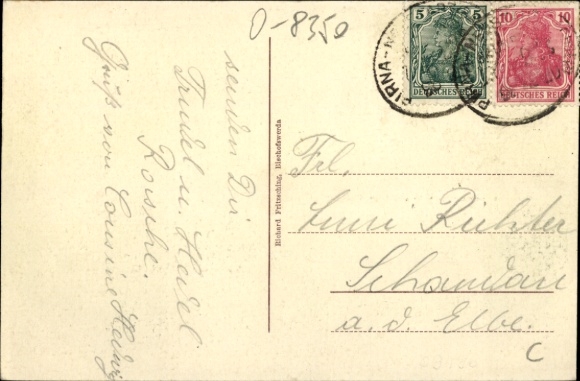 O-8350
senden Dir
Trudel u. Hedel
Rosche.
Gruß von Cousine
Richard Fritzsching, Bischofswerda
5 5
DEUTSCHES REICH
10 10
DEUTSCHES REICH
PIRNA-N
Frl.
Richter
Schandau
a. d. Elbe.
C